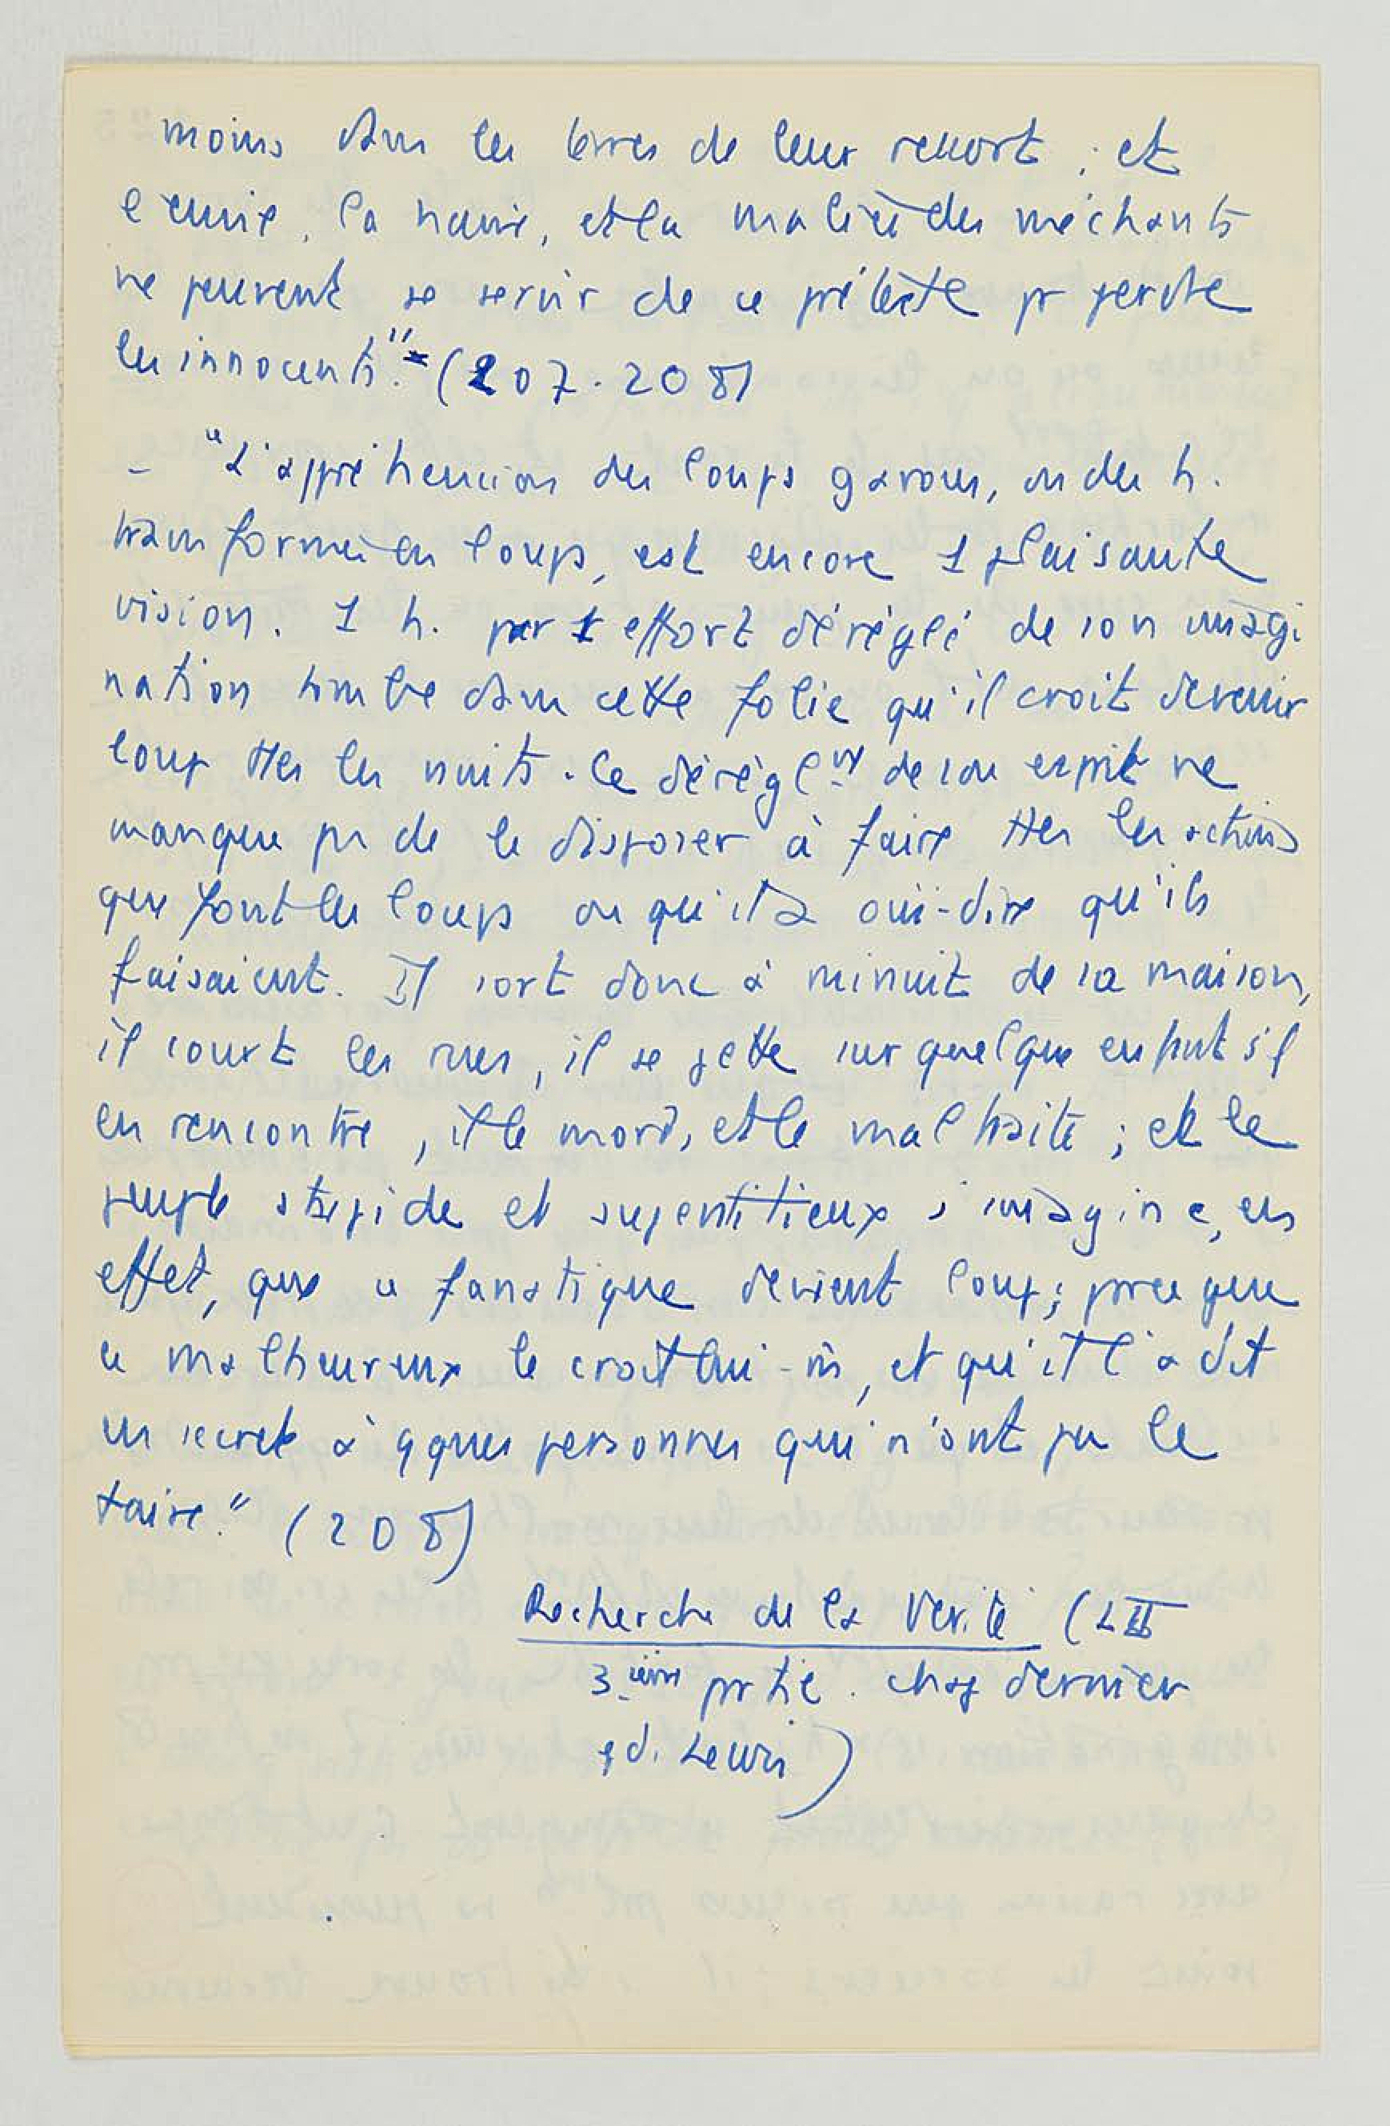 moins dans les terres de leur ressort ; et
l'envie, la haine, et la malice des méchants
ne peuvent se servir de ce prétexte pr perdre
les innocents". (207.208)
- "L'appréhension des loups garous, ou des h.
transformés en loups, est encore 1 plaisante
vision. 1 h. par 1 effort déréglé de son imagi
nation tombe dans cette folie qu'il croit devenir
loup ttes les nuits. Ce dérèglnt de son esprit ne
manque ps de le disposer à faire ttes les actions
que font les loups ou qu'il a ouï-dire qu'ils
faisaient. Il sort donc à minuit de sa maison,
il court les rues, il se jette sur quelque enfant s'il
en rencontre, il le mord, et le maltraite ; et le
peuple stupide et superstitieux s'imagine, en
effet, que ce fanatique devient loup ; parce que
ce malheureux le croit lui-m̂, et qu'il l'a dit
en secret à qques personnes qui n'ont pu le
taire." (208)
Recherche de la Vérité (L II
3ième partie. chap dernier
ed. Lewis)